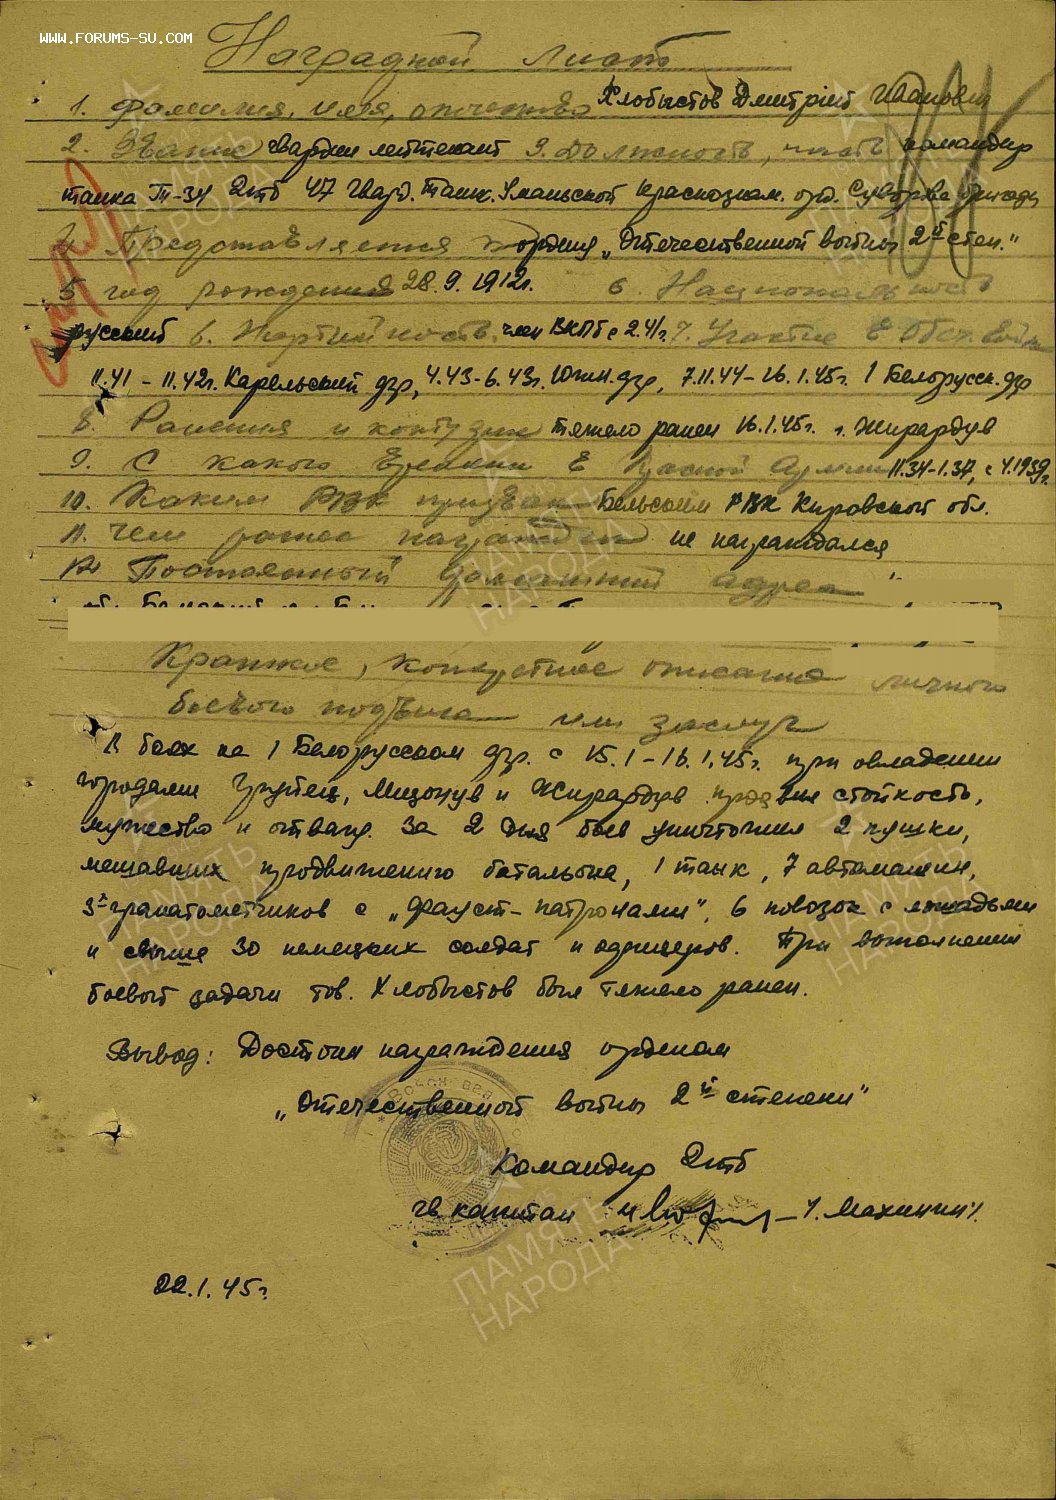 WWW.FORUMS-SU.COM
Наградной лист
1. Фамилия, имя, отчество Хлобыстов Дмитрий Иванович
2. Звание гвардии лейтенант 3. Должность, часть командир
танка Т-34 2тб 47 гвард. танк. Уманской краснознам. орд. Суворова бригады
4. Представляется к ордену „Отечественной войны 2й степ."
5 год рождения 28.9.1912г. 6. Национальность
русский 6. Партийность член ВКПб с 2.41г. 7. Участие в
11.41 – 11.42г. Карельский фр, 4.43-6.43г. Южн. фр, 7.11.44-16.1.45г. 1 Белорусск. фр
8. Ранения и контузии тяжело ранен 16.1.45г. г. Жирардув
9. С какого времени в Красной Армии 11.34-1.37, с 4.1939г.
10. Каким РВК призван Бельским РВК Кировской обл.
11. Чем ранее награжден не награждался
12 Постоянный домашний адрес
Краткое, конкретное описание личного
боевого подвига или заслуг
В боях на 1 Белорусском фр. с 15.1-16.1.45г. при овладении
городами Груйец, Мщонув и Жирардув проявил стойкость,
мужество и отвагу. За 2 дня боев уничтожил 2 пушки,
мешавших продвижению батальона, 1 танк, 7 автомашин,
3х гранатометчиков с „Фауст-патронами", 6 повозок с лошадьми
и свыше 30 немецких солдат и офицеров. При выполнении
боевой задачи тов. Хлобыстов был тяжело ранен.
Вывод: Достоин награждения орденом
„Отечественной войны 2й степени"
Командир 2тб
гв. капитан /. Махинин/.
22.1.45г.
ПАМЯТЬ
НАРОДА